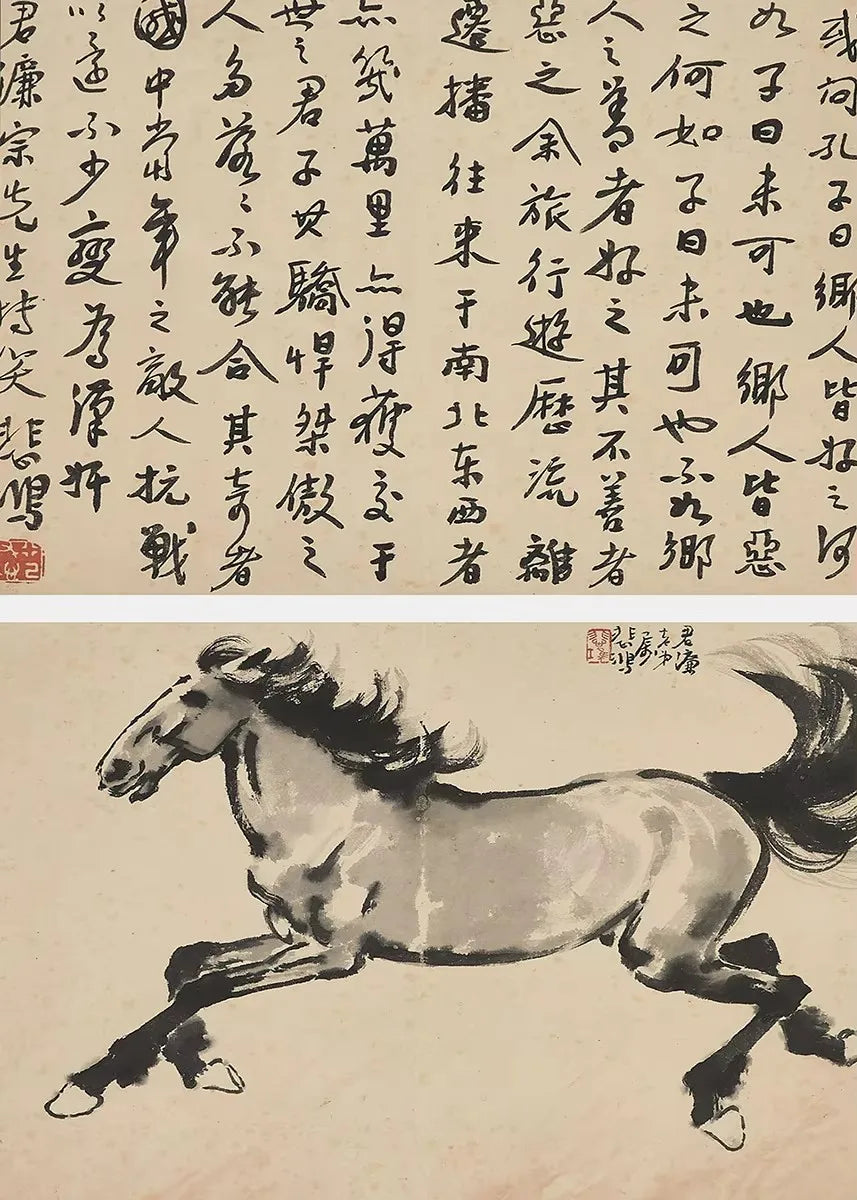 或问孔子曰鄉人皆好之何
如子曰未可也鄉人皆惡
之何如子曰未可也不如鄉
人之善者好之其不善者
惡之余旅行遊歷流離
遷播往来于南北东西者
亦幾萬里亦得獲交于
世之君子驕悍桀傲之
人多落落不能合其奇者
國中當年之敵人抗戰
以還不少變為漢奸
君濂宗先生博笑 悲鴻
君濂
老弟
属
悲鴻